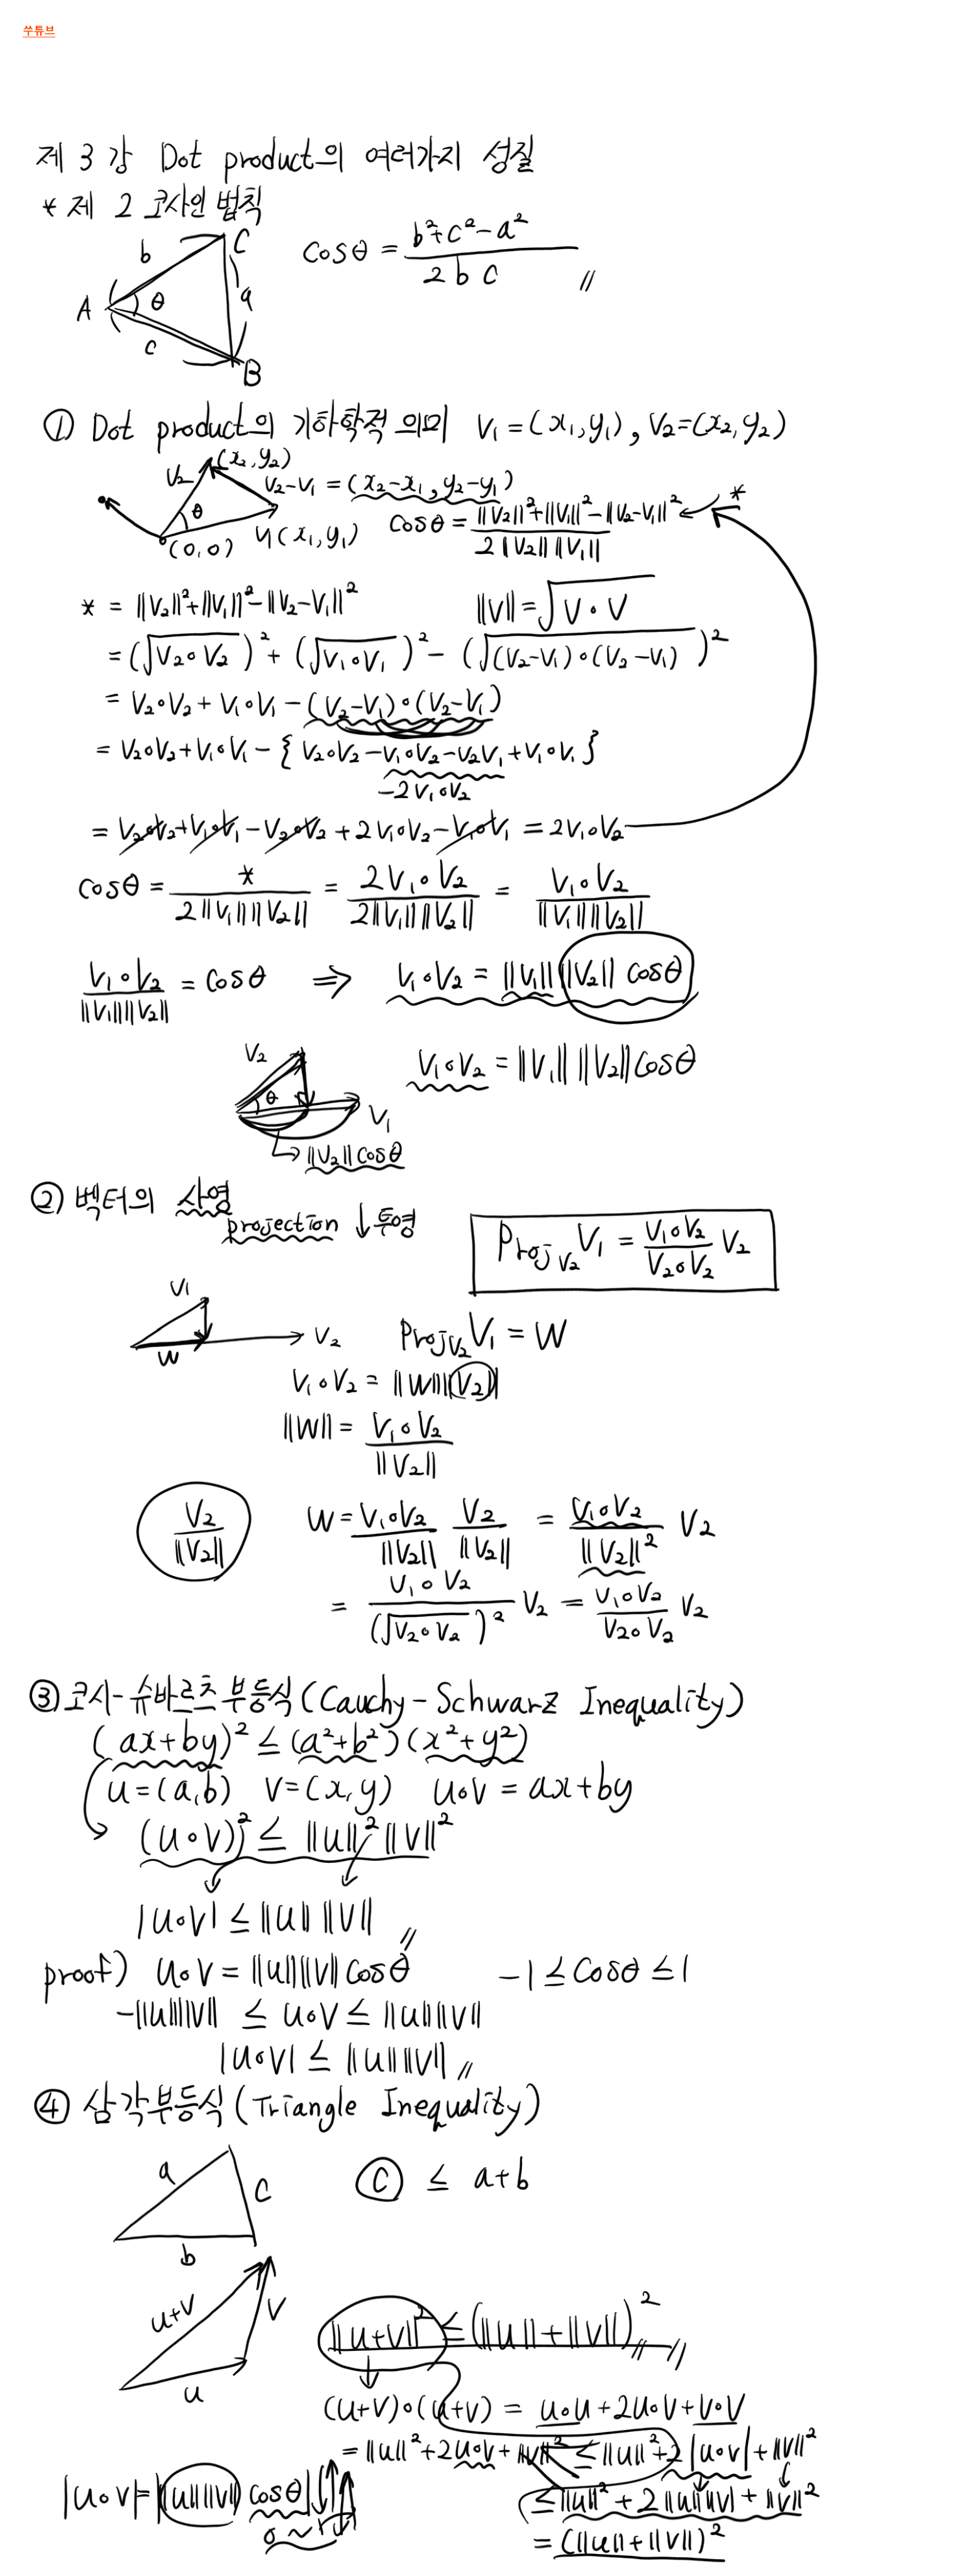 쑤튜브
제 3 강 Dot product의 여러가지 성질
* 제 2 코사인 법칙
A b C θ a c B
cosθ = (b²+c²-a²)/(2bc) //
① Dot product의 기하학적 의미 V₁=(x₁,y₁), V₂=(x₂,y₂)
V₂ (x₂,y₂)
V₂-V₁ = (x₂-x₁, y₂-y₁)
θ (0,0) V₁(x₁,y₁)
cosθ = (||V₂||²+||V₁||²-||V₂-V₁||²)/(2||V₂|| ||V₁||) *
* = ||V₂||²+||V₁||²-||V₂-V₁||²
||V|| = √(V∘V)
= (√(V₂∘V₂))² + (√(V₁∘V₁))² - (√((V₂-V₁)∘(V₂-V₁)))²
= V₂∘V₂ + V₁∘V₁ - (V₂-V₁)∘(V₂-V₁)
= V₂∘V₂+V₁∘V₁ - { V₂∘V₂-V₁∘V₂-V₂V₁+V₁∘V₁ }
-2V₁∘V₂
= V₂∘V₂+V₁∘V₁ - V₂∘V₂ + 2V₁∘V₂ - V₁∘V₁ = 2V₁∘V₂
cosθ = */(2||V₁|| ||V₂||) = (2V₁∘V₂)/(2||V₁|| ||V₂||) = (V₁∘V₂)/(||V₁|| ||V₂||)
(V₁∘V₂)/(||V₁|| ||V₂||) = cosθ ⇒ V₁∘V₂ = ||V₁|| ||V₂|| cosθ
V₂ θ V₁
V₁∘V₂ = ||V₁|| ||V₂|| cosθ
||V₂|| cosθ
② 벡터의 사영
projection ↓투영
Proj_V₂ V₁ = (V₁∘V₂)/(V₂∘V₂) V₂
V₁ W V₂
Proj_V₂ V₁ = W
V₁∘V₂ = ||W|| ||V₂||
||W|| = (V₁∘V₂)/||V₂||
V₂/||V₂||
W = (V₁∘V₂)/||V₂|| V₂/||V₂|| = (V₁∘V₂)/||V₂||² V₂
= (V₁∘V₂)/(√(V₂∘V₂))² V₂ = (V₁∘V₂)/(V₂∘V₂) V₂
③ 코시-슈바르츠 부등식 (Cauchy-Schwarz Inequality)
(ax+by)² ≤ (a²+b²)(x²+y²)
u=(a,b) v=(x,y) u∘v = ax+by
(u∘v)² ≤ ||u||² ||v||²
|u∘v| ≤ ||u|| ||v|| //
proof) u∘v = ||u|| ||v|| cosθ -1 ≤ cosθ ≤ 1
-||u|| ||v|| ≤ u∘v ≤ ||u|| ||v||
|u∘v| ≤ ||u|| ||v|| //
④ 삼각부등식 (Triangle Inequality)
a c b
c ≤ a+b
u+v v u
||u+v||² ≤ (||u||+||v||)² //
(u+v)∘(u+v) = u∘u+2u∘v+v∘v
= ||u||²+2u∘v+||v||² ≤ ||u||²+2|u∘v|+||v||²
|u∘v| = | ||u|| ||v|| cosθ |
0 ~ 1
≤ ||u||²+2||u|| ||v||+||v||²
= (||u||+||v||)²